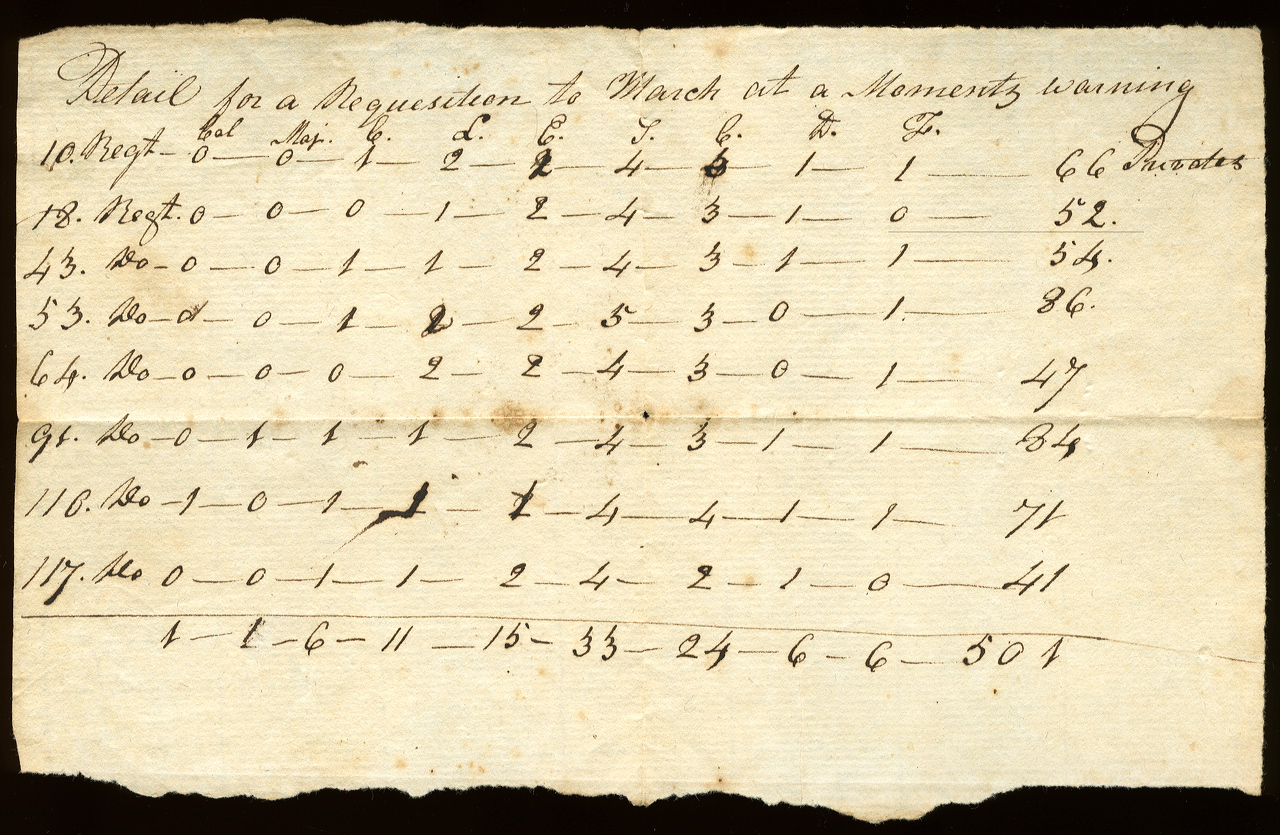 Detail for a Requesition to March at a Moments warning
Col Maj. C. L. E. S. C. D. F.
10. Regt — 0 — 0 — 1 — 2 — 2 — 4 — 3 — 1 — 1 — 66 Privates
18. Regt. 0 — 0 — 0 — 1 — 2 — 4 — 3 — 1 — 0 — 52.
43. Do — 0 — 0 — 1 — 1 — 2 — 4 — 3 — 1 — 1 — 54.
53. Do — 0 — 0 — 1 — 2 — 2 — 5 — 3 — 0 — 1 — 86.
64. Do — 0 — 0 — 0 — 2 — 2 — 4 — 3 — 0 — 1 — 47
91. Do — 0 — 1 — 1 — 1 — 2 — 4 — 3 — 1 — 1 — 84
110. Do — 1 — 0 — 1 — 1 — 1 — 4 — 4 — 1 — 1 — 71
117. Do 0 — 0 — 1 — 1 — 2 — 4 — 2 — 1 — 0 — 41
1 — 1 — 6 — 11 — 15 — 33 — 24 — 6 — 6 — 501